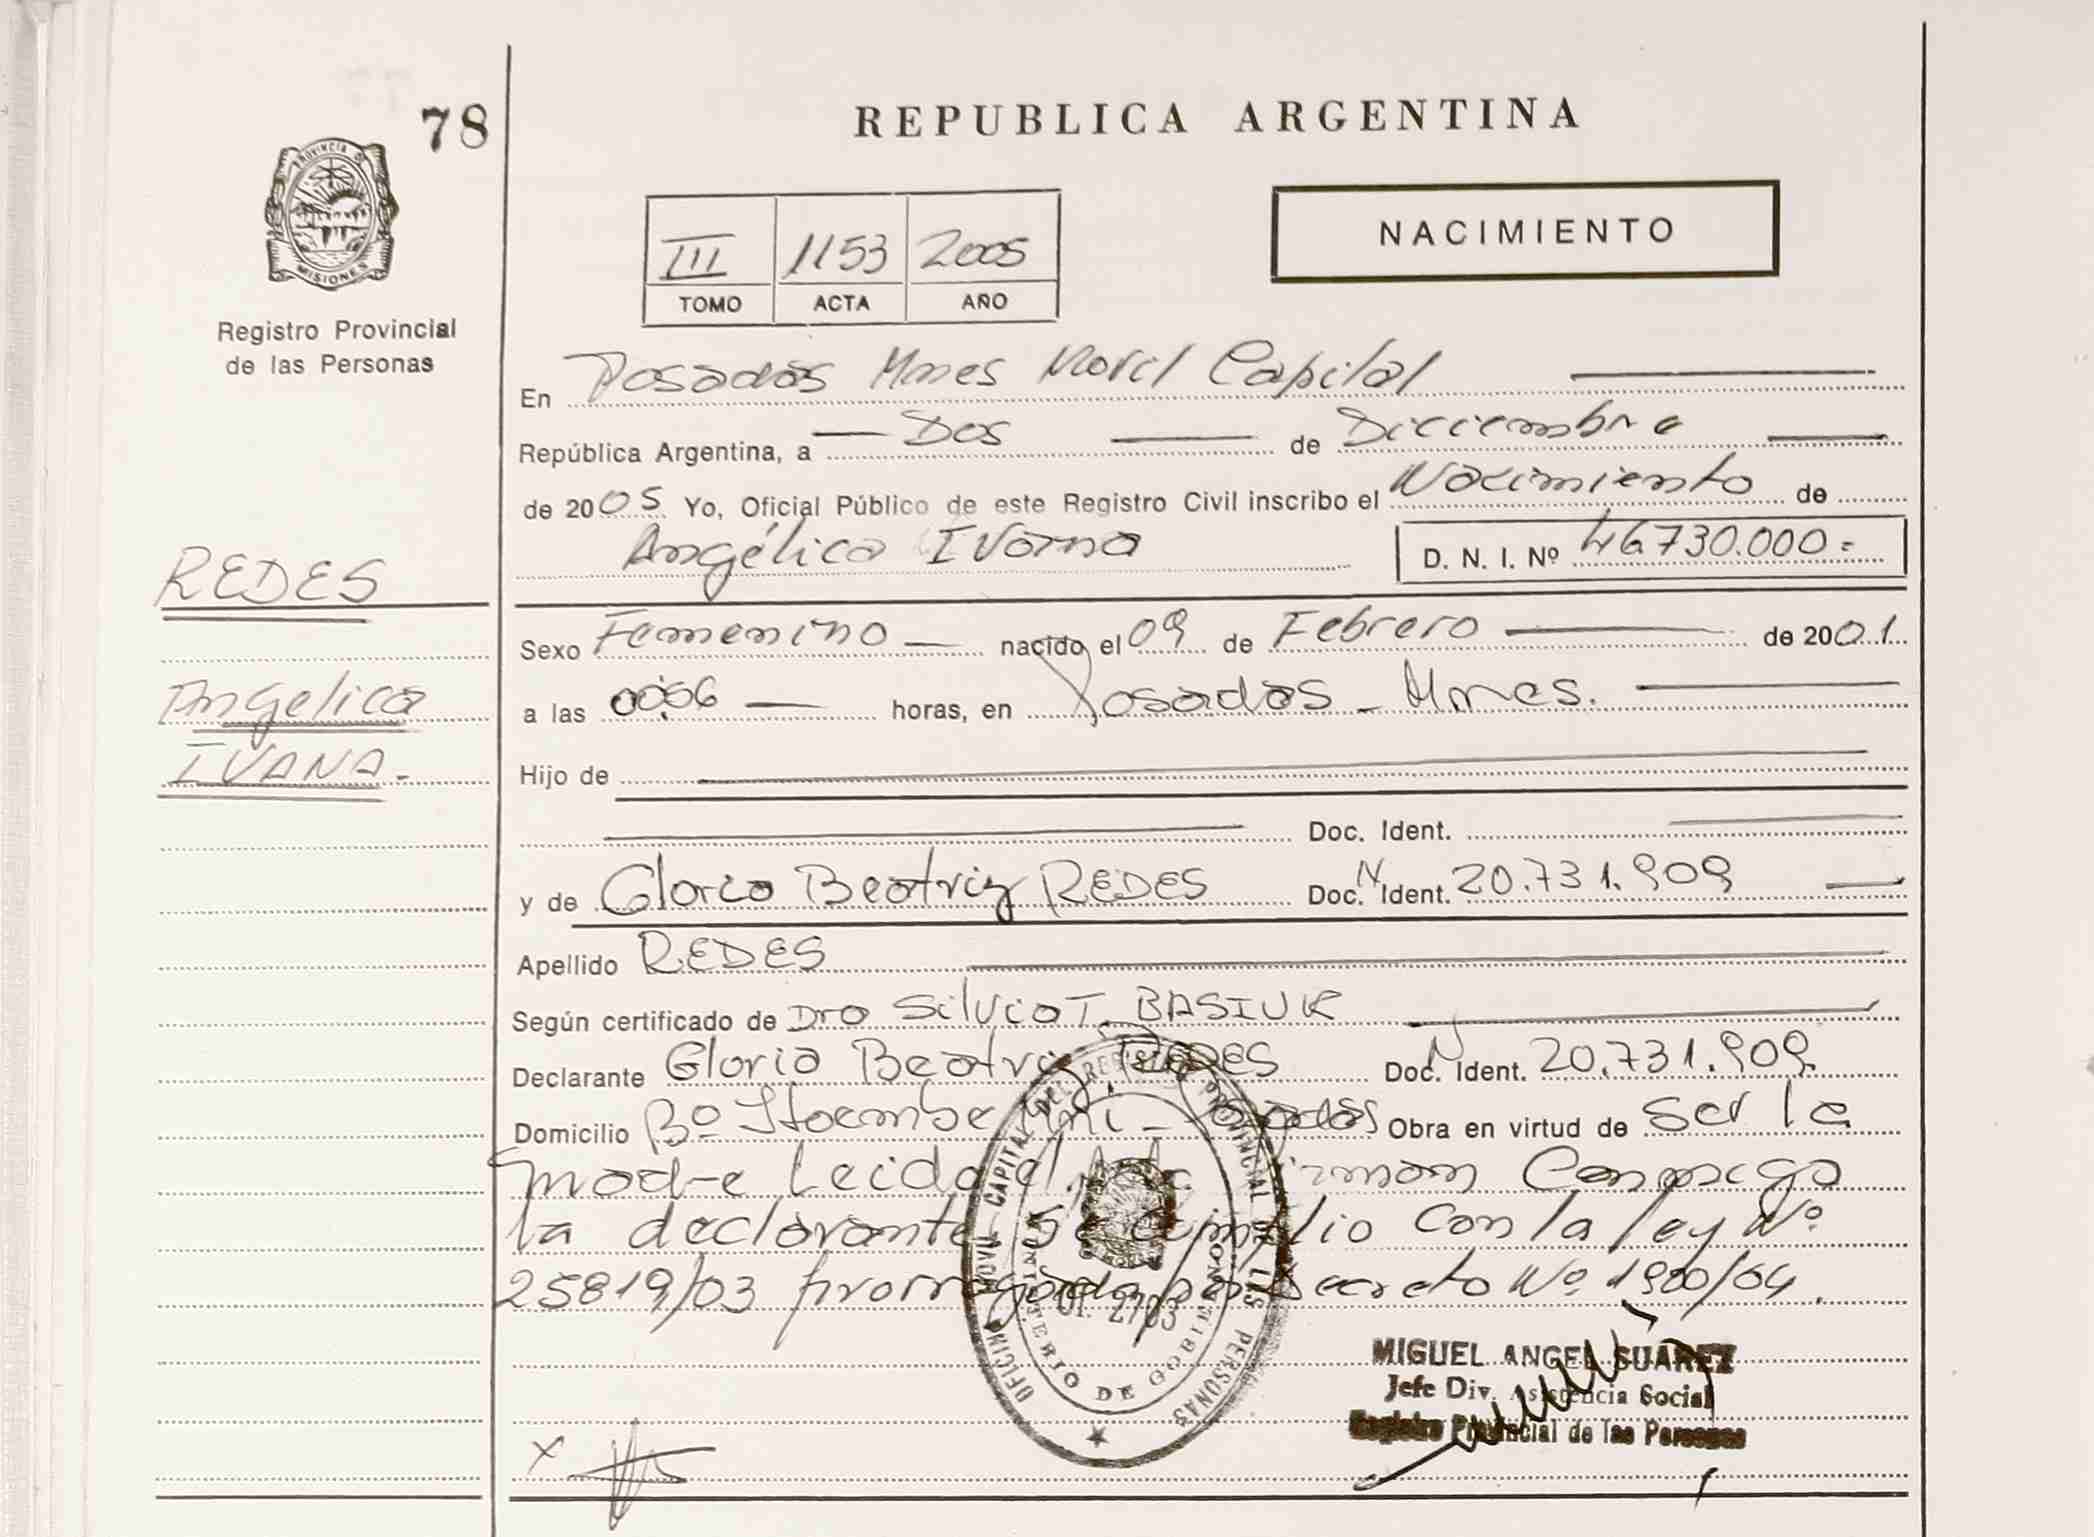 78
REPUBLICA ARGENTINA
PROVINCIA DE MISIONES
Registro Provincial
de las Personas
NACIMIENTO
III 1153 2005
TOMO ACTA AÑO
En Posadas Mnes Movil Capital
República Argentina, a Dos de Diciembre
de 2005 Yo, Oficial Público de este Registro Civil inscribo el Nacimiento de
Angélica Ivana D. N. I. Nº 46730.000.=
REDES
Angelica
IVANA.-
Sexo Femenino nacido el 09 de Febrero de 2001
a las 00:06 horas, en Posadas - Mnes.
Hijo de
Doc. Ident.
y de Gloria Beatriz REDES Doc. N Ident. 20.731.909
Apellido REDES
Según certificado de Dro Silvio T. BASIUK
Declarante Gloria Beatriz REDES Doc. N Ident. 20.731.909
Domicilio Bº Itaembe Mini - Posadas Obra en virtud de ser la
madre Leida el firman Conmigo
la declarante se cumplio con la ley Nº
25819/03 prorrogada por Decreto Nº 1900/04.
OFICINA MOVIL CAPITAL DEL REGISTRO PROVINCIAL DE LAS PERSONAS
MINISTERIO DE GOBIERNO
MIGUEL ANGEL SUAREZ
Jefe Div. Asistencia Social
Registro Provincial de las Personas
X